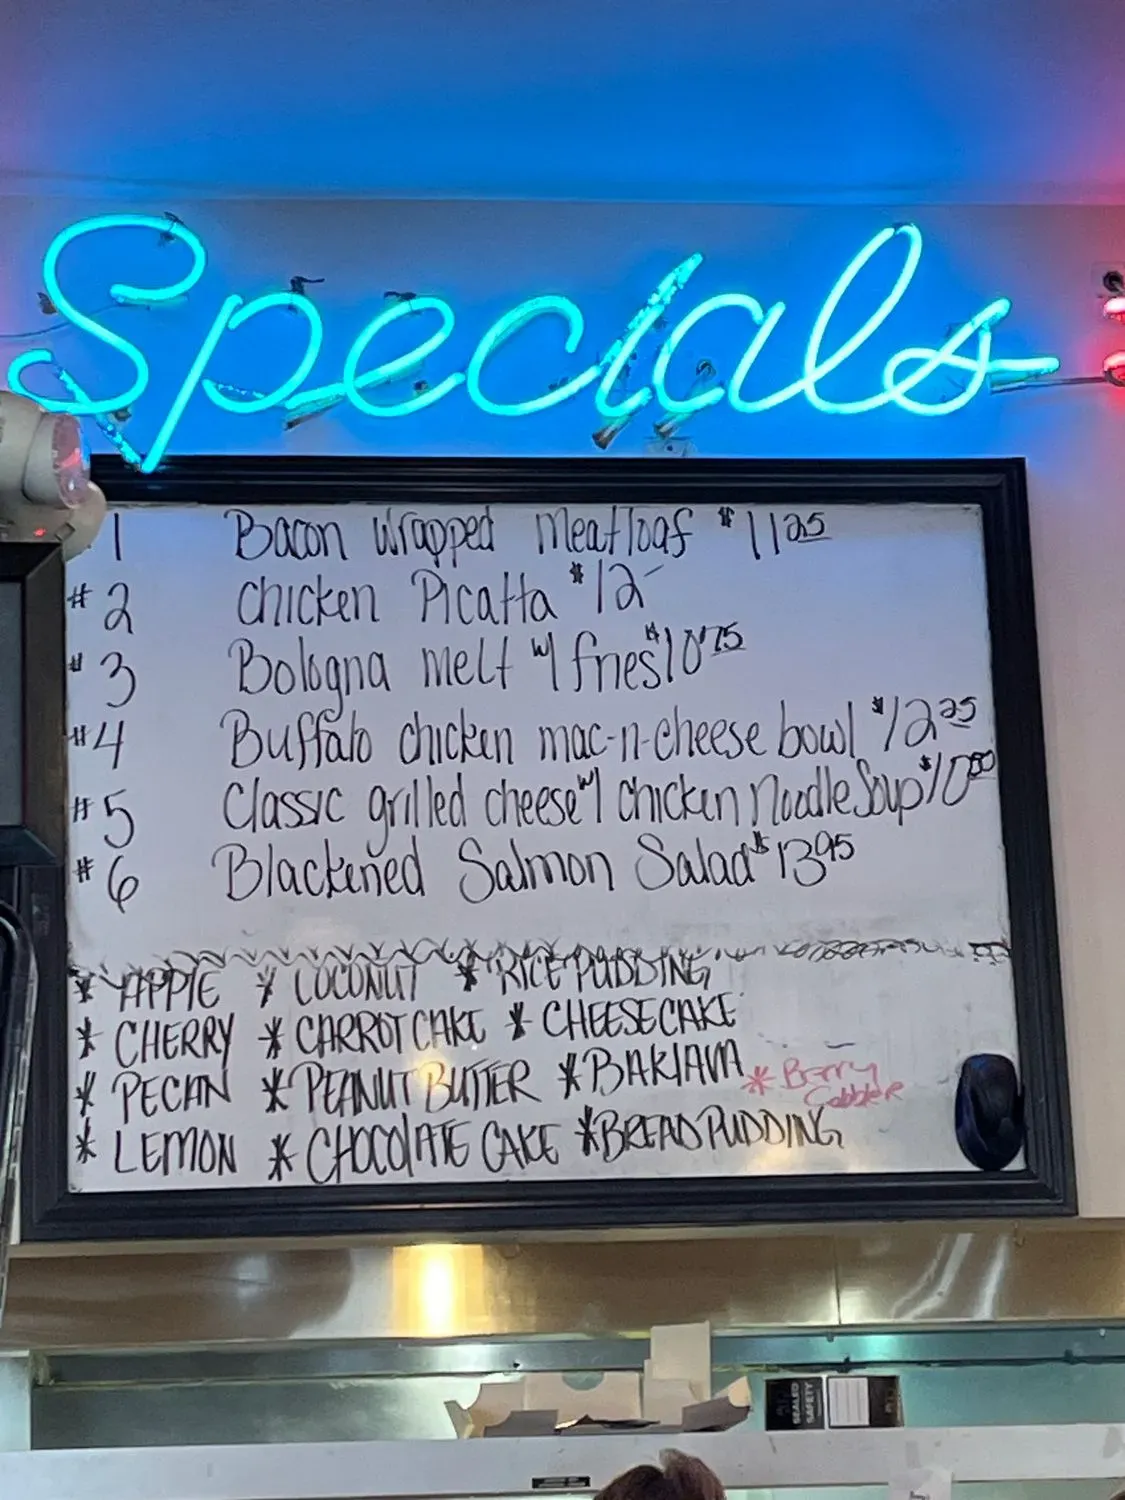 Specials
1 Bacon wrapped meatloaf $11.25
#2 Chicken Picatta $12-
#3 Bologna melt w/ fries $10.75
#4 Buffalo chicken mac-n-cheese bowl $12.25
#5 Classic grilled cheese w/ chicken noodle soup $10.50
#6 Blackened Salmon Salad $13.95
* APPLE * COCONUT * RICE PUDDING
* CHERRY * CARROT CAKE * CHEESECAKE
* PECAN * PEANUT BUTTER * BAKLAVA * Berry
Cobbler
* LEMON * CHOCOLATE CAKE * BREAD PUDDING
SEALED
SAFETY